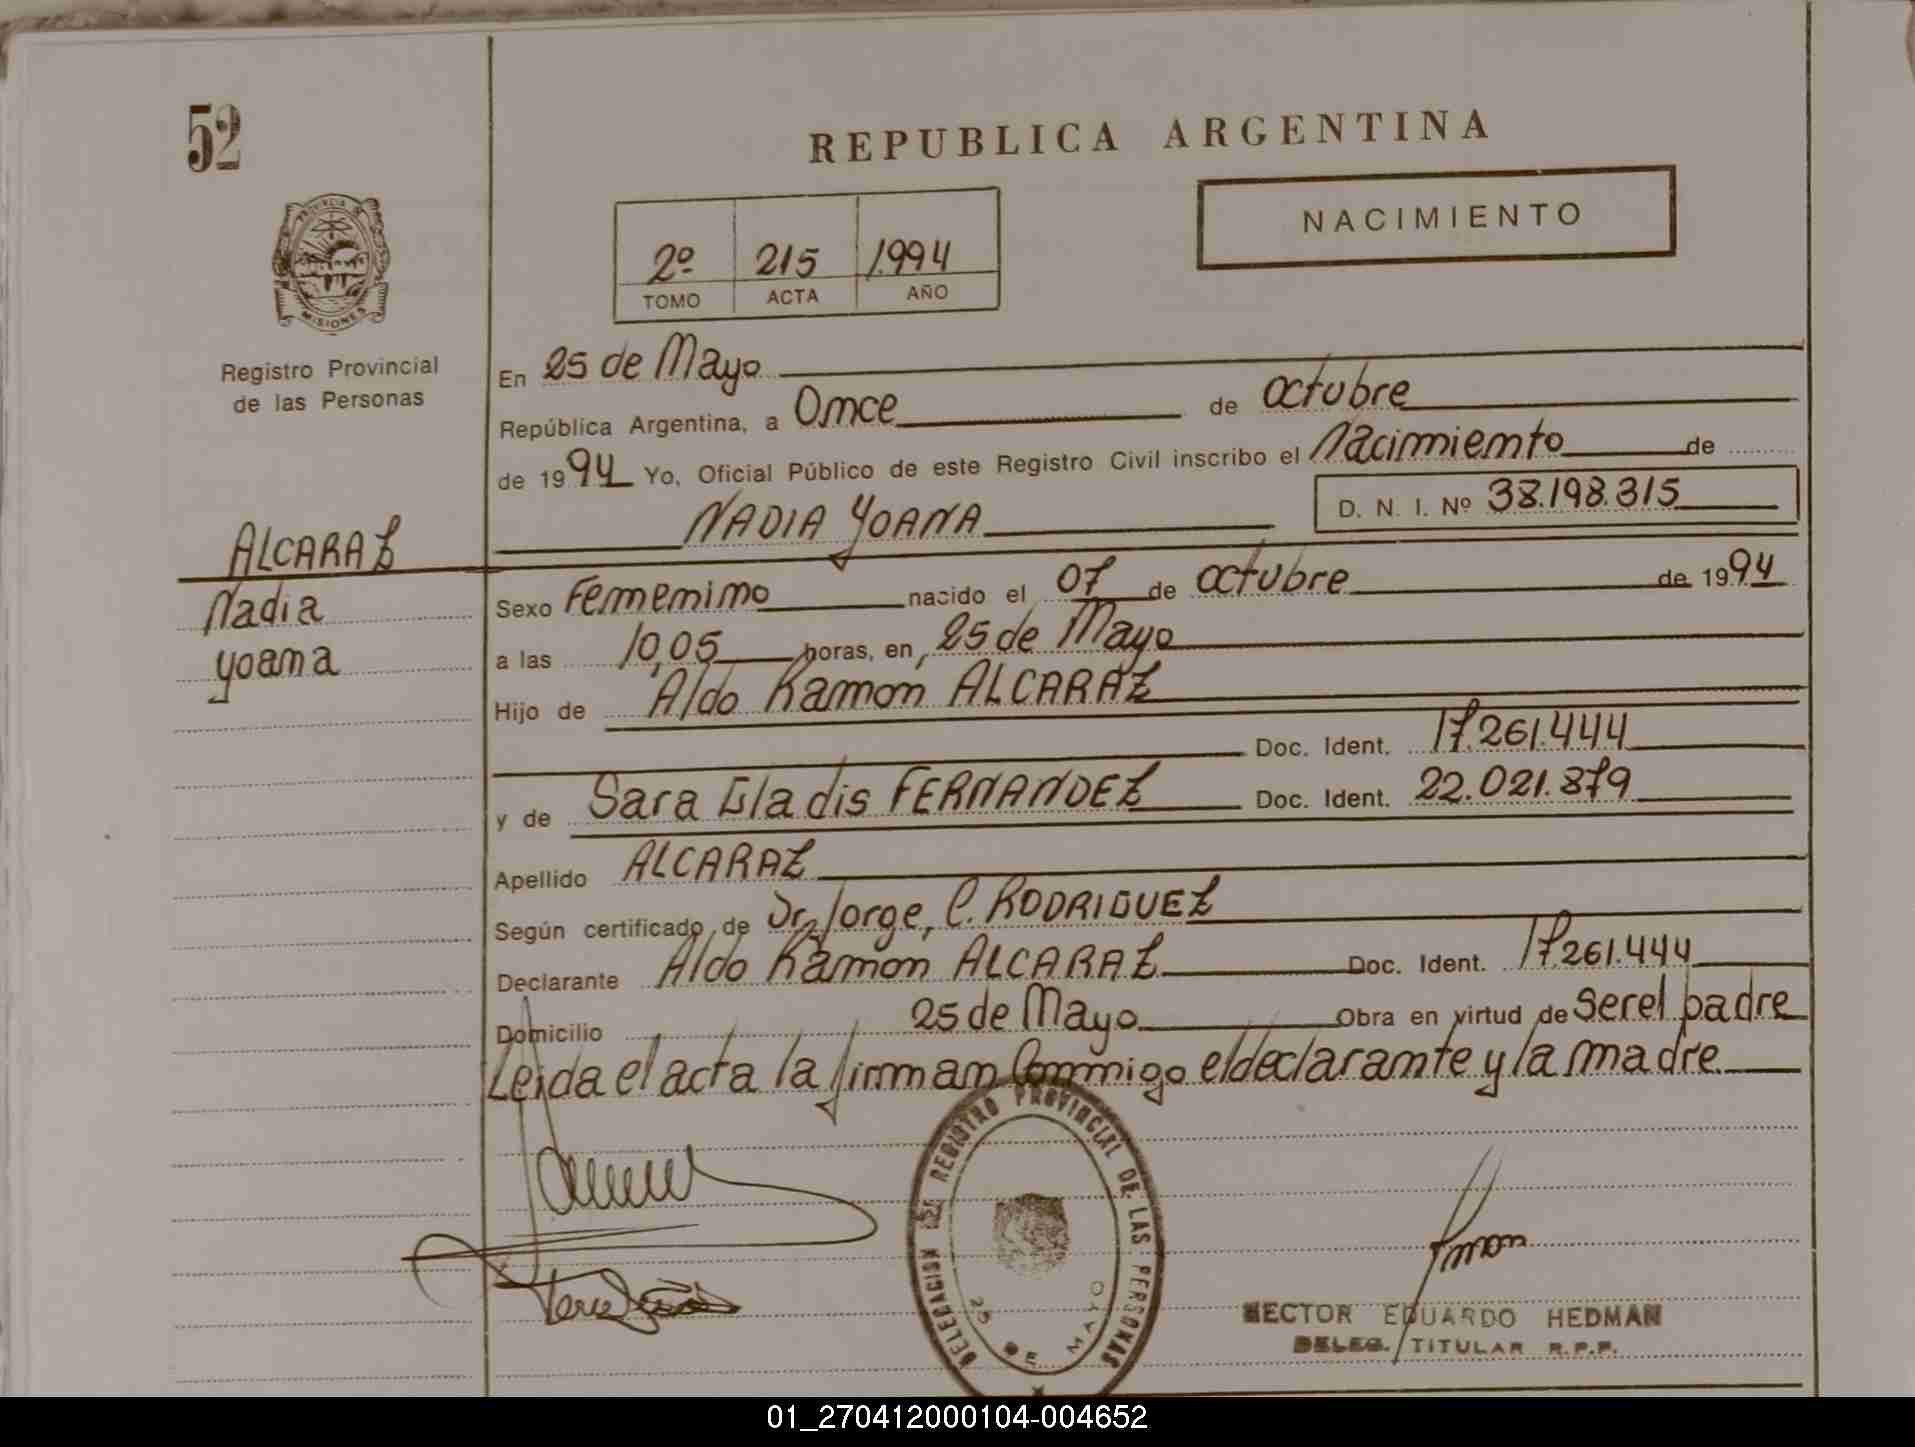 52
REPUBLICA ARGENTINA
NACIMIENTO
2º 215 1994
TOMO ACTA AÑO
PROVINCIA DE MISIONES
Registro Provincial
de las Personas
ALCARAZ
Nadia
Yoana
En 25 de Mayo
República Argentina, a Once de octubre
de 1994 Yo, Oficial Público de este Registro Civil inscribo el Nacimiento de
NADIA YOANA D. N. I. Nº 38.198.315
Sexo Femenino nacido el 07 de octubre de 1994
a las 10,05 horas, en, 25 de Mayo
Hijo de Aldo Ramon ALCARAZ
Doc. Ident. 17.261.444
y de Sara Gladis FERNANDEZ Doc. Ident. 22.021.879
Apellido ALCARAZ
Según certificado de Dr. Jorge, C. RODRIGUEZ
Declarante Aldo Ramon ALCARAZ Doc. Ident. 17.261.444
Domicilio 25 de Mayo Obra en virtud de Ser el padre
Leida el acta la firman Conmigo el declarante y la madre.
DELEGACION DEL REGISTRO PROVINCIAL DE LAS PERSONAS
25 DE MAYO
HECTOR EDUARDO HEDMAN
DELEG. TITULAR R.P.P.
01_270412000104-004652